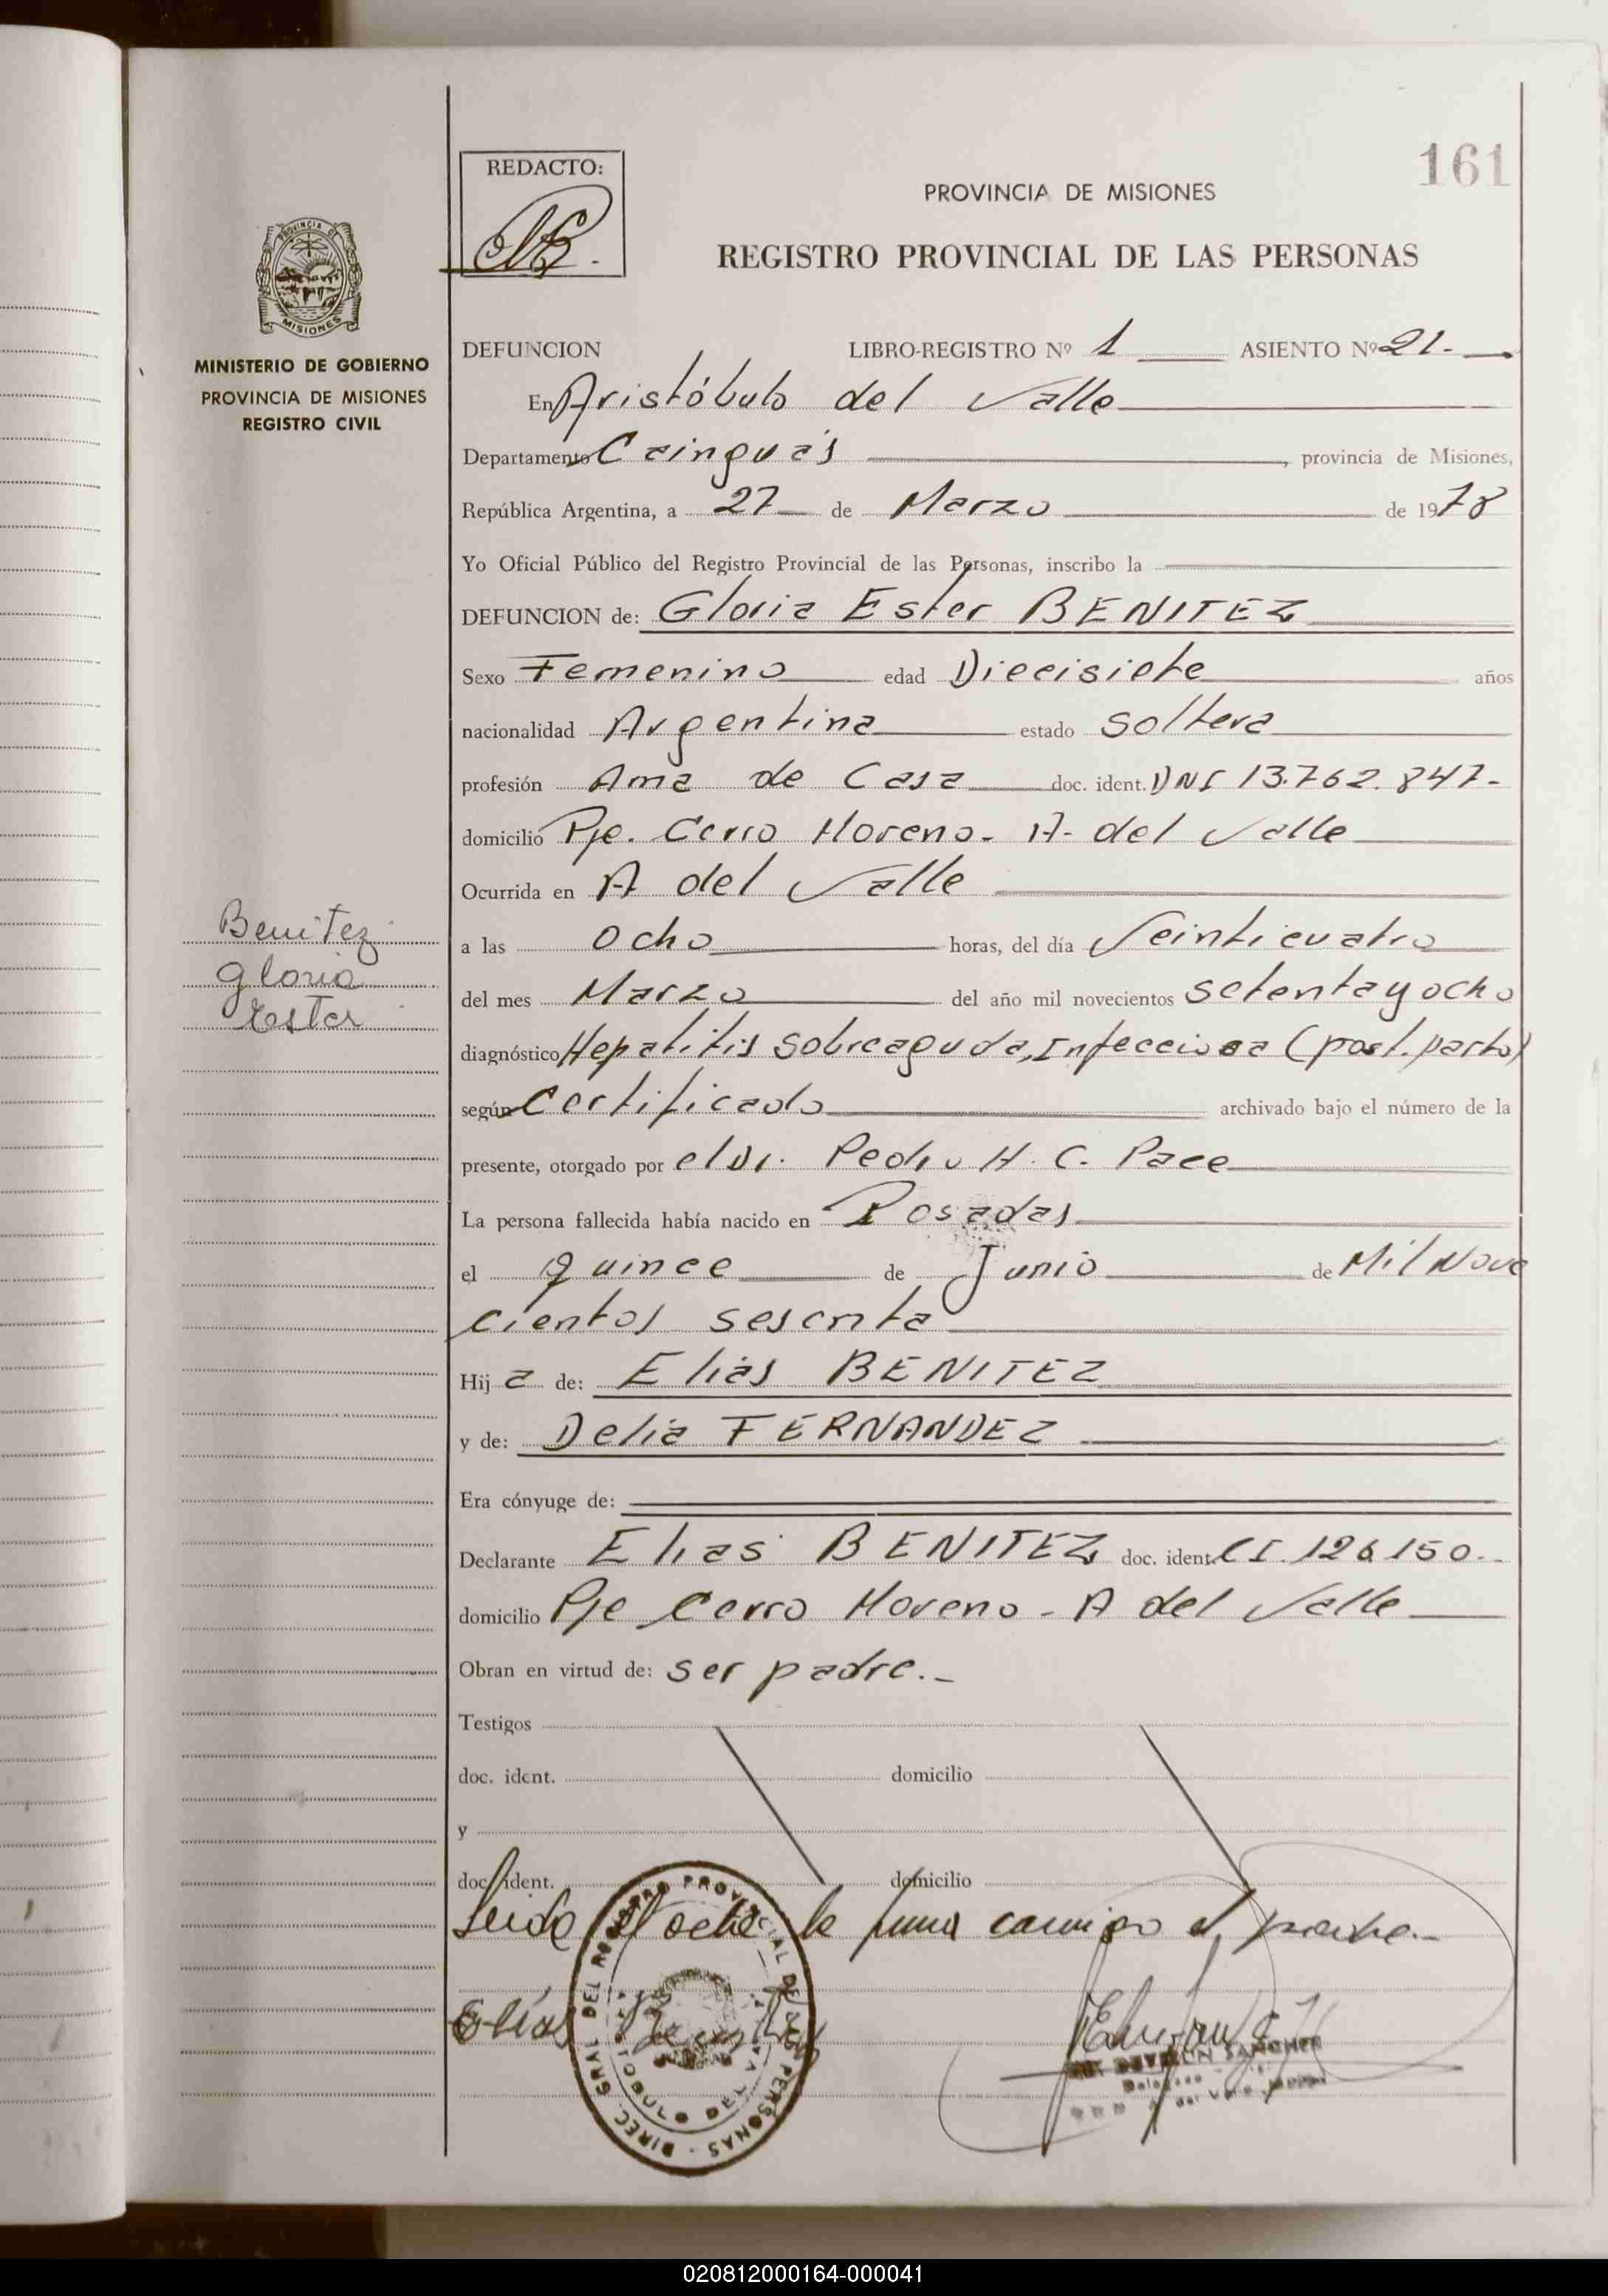 161
REDACTO:
PROVINCIA DE MISIONES
REGISTRO PROVINCIAL DE LAS PERSONAS
PROVINCIA DE
MISIONES
MINISTERIO DE GOBIERNO
PROVINCIA DE MISIONES
REGISTRO CIVIL
DEFUNCION LIBRO-REGISTRO Nº 1 ASIENTO Nº 21.-
En Aristóbulo del Valle
Departamento Cainguás, provincia de Misiones,
República Argentina, a 27 de Marzo de 1978
Yo Oficial Público del Registro Provincial de las Personas, inscribo la
DEFUNCION de: Gloria Ester BENITEZ
Sexo Femenino edad Diecisiete años
nacionalidad Argentina estado soltera
profesión Ama de Casa doc. ident. DNI 13.762.847-
domicilio Pje. Cerro Moreno- A- del Valle
Ocurrida en A del Valle
a las ocho horas, del día Veinticuatro
del mes Marzo del año mil novecientos setenta y ocho
diagnóstico Hepatitis sobreaguda, Infecciosa (post. parto)
según Certificado archivado bajo el número de la
presente, otorgado por el Dr. Pedro H. C. Pace
La persona fallecida había nacido en Posadas
el quince de Junio de Mil Nove
cientos sesenta
Hija de: Elias BENITEZ
y de: Delia FERNANDEZ
Era cónyuge de:
Declarante Elias BENITEZ doc. ident. CI. 126.150.-
domicilio Pje Cerro Moreno - A del Valle
Obran en virtud de: ser padre.-
Testigos
doc. ident. domicilio
y
doc. ident. domicilio
Leida el acta la firma conmigo el padre.-
Elías Benitez
DIREC. GRAL DEL REGISTRO PROVINCIAL DE LAS PERSONAS
ARISTOBULO DEL VALLE
SANCHEZ
Delegado
Benitez
Gloria
Ester
020812000164-000041